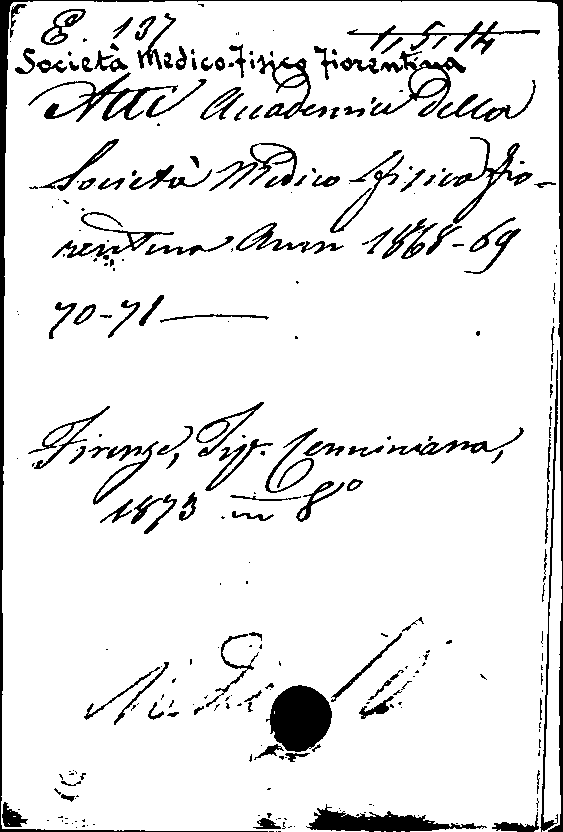 E. 137 1, 5, 14
Società Medico-Fisico Fiorentina
Atti Accademici della
Società Medico-fisica Fio-
rentina Anni 1868-69
70-71
Firenze, Tip. Cenniniana,
1873 in 8°